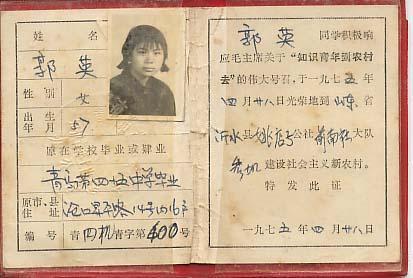 姓名
郭英
性别 女
出生年月 57
原在学校毕业或肄业
青岛第四十五中学毕业
原市、县住址
编号 青四机青字第400号
郭英 同学积极响
应毛主席关于“知识青年到农村
去”的伟大号召，于一九七五年
四月廿八日光荣地到山东省
沂水县姚店子公社 大队
参加 建设社会主义新农村。
特发此证
一九七五年四月廿八日